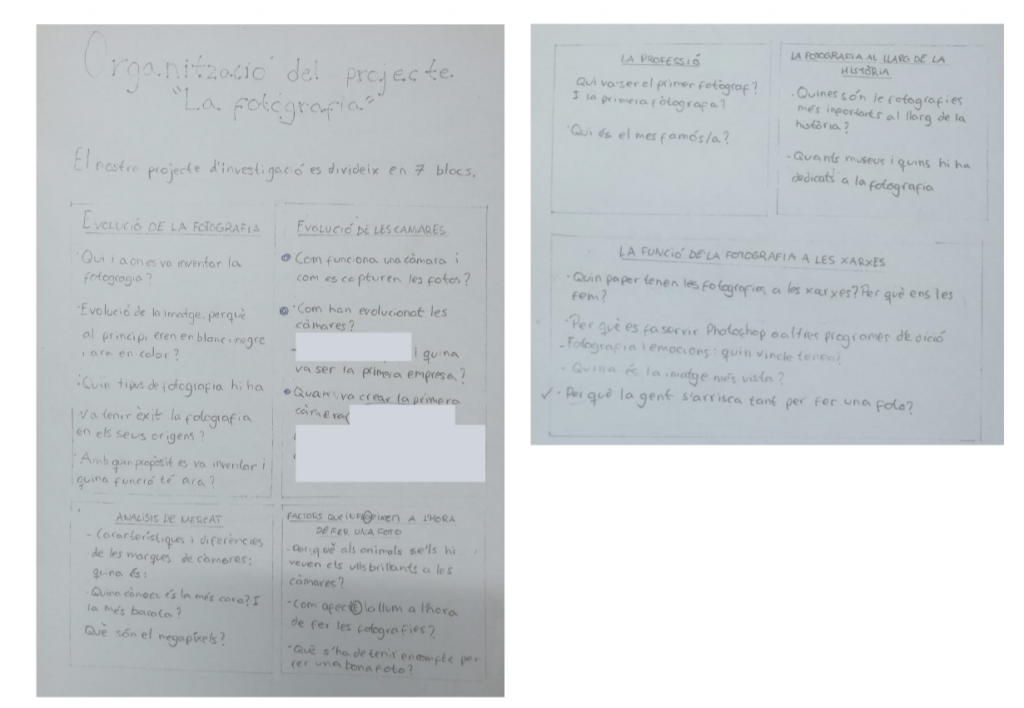 Organització del projecte
"La fotografia"
El nostre projecte d'investigació es divideix en 7 blocs.
EVOLUCIÓ DE LA FOTOGRAFIA
· Qui i aones va inventar la
fotogragia?
· Evolució de la imatge, perquè
al principi eren en blanc i negre
i ara en color?
· Quin tipus de fotografia hi ha
va tenir èxit la fotografia
en els seus origens?
· Amb quin propòsit es va inventar i
quina funció té ara?
EVOLUCIÓ DE LES CAMARES
Com funciona una càmara i
com es capturen les fotos?
· Com han evolucionat les
càmares?
i quina
va ser la primera empresa?
Quan va crear la primera
càmera
ANALISIS DE MERCAT
- Característiques i diferències
de les marques de càmares:
quina és:
· Quina càmara és la més cara? I
la més barata?
Què són el megapíxels?
FACTORS QUE INFLUEIXEN A L'HORA
DE FER UNA FOTO
- Per què als animals se'ls hi
veuen els ulls brillants a les
càmares?
- Com afecta la llum a l'hora
de fer les fotografies?
- Què s'ha de tenir en compte per
fer una bona foto?
LA PROFESSIÓ
Qui va ser el primer fotògraf?
I la primera fotografa?
· Qui és el mes famós/a?
LA FOTOGRAFIA AL LLARG DE LA
HISTÒRIA
· Quines són le fotografies
més inportants al llarg de la
història?
- Quants museus i quins hi ha
dedicats a la fotografia
LA FUNCIÓ DE LA FOTOGRAFIA A LES XARXES
· Quin paper tenen les fotografies a les xarxes? Per què ens les
fem?
· Per què es fa servir Photoshop o altres programes de dició
- Fotografia i emocions: quin vincle tenen?
- Quina és la imatge més vista?
✓ · Per què la gent s'arrisca tant per fer una foto?